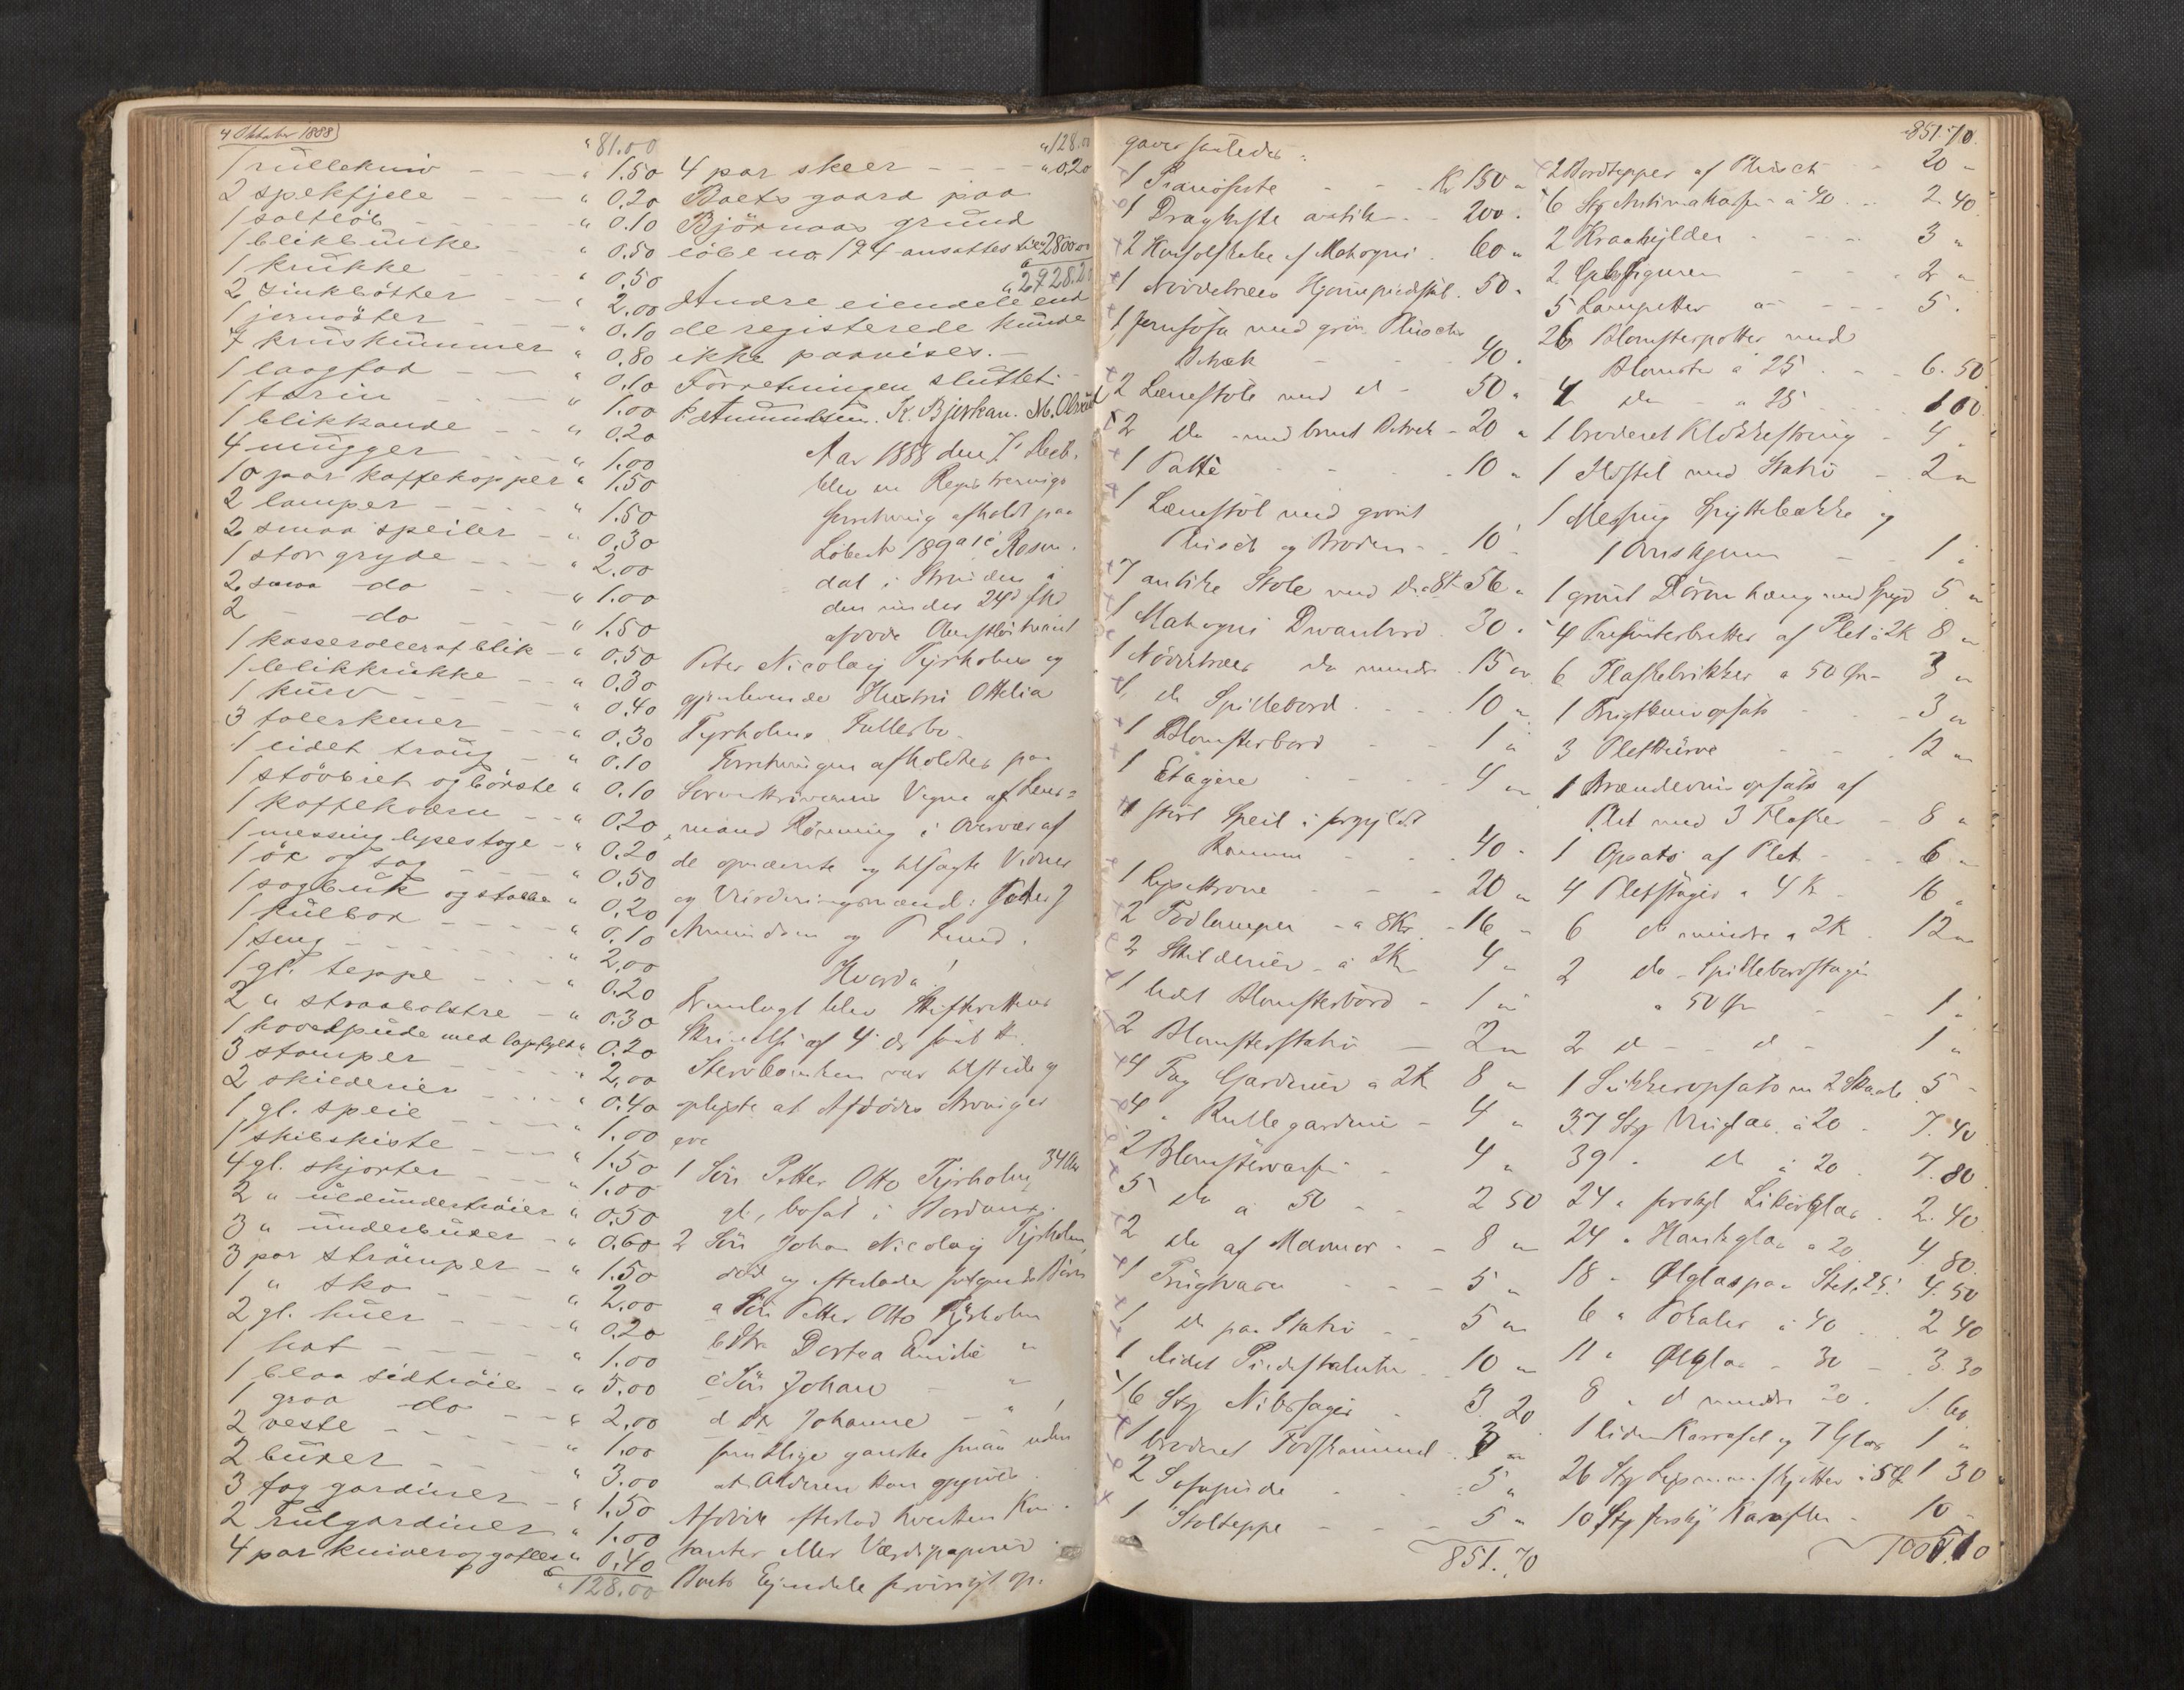 4 Oktober 1888
" 81.00
1 rullekniv " 1.50
2 spekfjele " 0.20
1 saltløb " 0.10
1 blikbøtte " 0.50
1 krukke " 0.50
2 zinkbøtter " 2.00
1 jernøster " 0.10
7 kruskummer " 0.80
1 laagfad " 0.10
1 terin " 1.00
1 blikkande " 0.20
4 mugger " 1.00
10 par kaffekopper " 1.50
2 lamper " 1.50
2 smaa speiler " 0.30
1 stor gryde " 2.00
2 smaa do " 1.00
2 - do " 1.50
1 kasserolle af blik " 0.50
1 blikkrukke " 0.30
1 kurv " 0.40
3 tallerkener " 0.30
1 lidet traug " 0.10
1 støvbret og børste " 0.10
1 kaffekværn " 0.20
1 messing lysestage " 0.20
1 øx og sag " 0.50
1 sagbuk og stabbe " 0.20
1 kulbox " 0.10
1 seng " 2.00
1 gl. teppe " 0.20
2 " straabolstre " 0.30
1 hovedpude med lagstykke " 0.20
3 stamper " 2.00
2 skilderier " 0.40
1 gl. speil " 1.00
1 skibskiste " 1.50
4 gl. skjorter " 1.00
2 " uldundertrøier " 0.50
3 " underbuxer " 0.60
3 par strømper " 1.50
1 " sko " 2.00
2 gl. huer " 0.20
1 hat " 1.00
1 blaa sidtrøie " 5.00
1 graa do " 2.00
2 veste " 1.00
2 buxer " 3.00
3 fag gardiner " 1.50
2 rulgardiner " 1.00
4 par kniver og gafler " 0.40
" 128.00
" 128.00
4 par skeer " 0.20
Boets gaard paa
Bjørnaas grund
løbe no 194 ansattes til " 2800.00
" 2928.20
Andre eiendele end
de registerede kunde
ikke paavises.-
Forretningen sluttet.
P. Amundsen. K. Bjerkan. M. Olsen
Aar 1888 den 7 Decb.
blev en Registrerings
forretning afholdt paa
Løbent 189 a 16 Rosen-
dal i Strinden i
den under 24 f.M.
afdøde Oberstløitnant
Peter Nicolay Tyrholms og
gjenlevende Hustru Ottelia
Tyrholms Fællesbo.
Forretningen afholdtes paa
Sorenskriverens Vegne af Lens-
mand Rønning i Overvær af
de opnævnte og tilsagte Vidner
og Vurderingsmænd: Peter J
Amundsen og P Lund.
Hvorda!
Fremlagt blev Skifterettens
Skrivelse af 4 ds samt
Stervboenken var tilstede og
oplyste at Afdødes Arvinger
ere
1 Søn Petter Otto Tyrholm 34 Aar
gl., bosat i Stordøen.
2 Søn Johan Nicolay Tyrholm,
død og efterlader følgende Børn
a Søn Petter Otto Tyrholm
b Dtr Dortea Emilie "
c Søn Johan - "
d Dtr Johanne - "
samtlige ganske smaa uden
at Alderen kan opgives.
Afdøde efterlod hverken Kon-
tanter eller Værdipapirer.
Boets Eiendele forøvrigt op-
gaves saaledes:
1 Pianoforte Kr 150 "
1 Dragkiste antik 200 "
2 Konsolskabe af Mahogni 60 "
1 Nøddetræes Hjørnepiedestal 50 "
1 Jernsofa med grøn Plusch
Betræk 40 "
2 Lænestole med d 50 "
2 do med brunt Betræk 20 "
1 Patte 10 "
1 Lænestol med grønt
Plusch og Broderi 10 "
7 antike Stole med d. a 8 K 56 "
1 Mahogni Divanbord 30 "
1 Nøddetræes do mindre 15 "
1 do Spillebord 10 "
1 Blomsterbord 1 "
1 Etagere 4 "
1 stort Speil i forgyldt
Ramme 40 "
1 Lysekrone 20 "
2 Bordlamper a 8 Kr 16 "
2 Skilderier a 2 Kr 4 "
1 lidet Blomsterbord 1 "
2 Blomsterstativ 2 "
4 Fag Gardiner a 2 Kr 8 "
4 " Rullegardiner 4 "
2 Blomstervaser 4 "
5 do a 50 2 50
2 do af Marmor 8 "
1 Frugtvase 5 "
1 do paa Stativ 5 "
1 lidet Piedestalur 10 "
16 Stk Nibssager 3 20
1 broderet Fodskammel 3 "
2 Sofapude 5 "
1 Stolteppe 5 "
851.70
851.70
2 Bordtepper af Plusch 20 "
6 Stk Antimakasser a 40 2.40
2 Kraahylder 3 "
2 Gibsfigurer 2 "
5 Lampetter 5 "
26 Blomsterpotter med
Blomster a 25 6.50
4 do a 25 1 00
1 broderet Klokkestreng 4 "
1 Ildstel med Stativ 2 "
1 Messing Spyttebakke og
1 1 "
1 grønt Dørom hæng med Spyd 5 "
4 Presenterbretter af Plet a 2 K 8 "
6 Flaskebrikker a 50 Øre 3 "
1 Frugtknivopsats 3 "
3 Pletkurve 12 "
1 Brændevinsopsats af
Plet med 3 Flasker 8 "
1 Opsats af Plet 6 "
4 Pletstager a 4 K 16 "
6 do mindre a 2 K 12 "
2 do Spillebordstager
a 50 Øre 1 "
2 d - d 1 "
1 Sukkeropsats m 2 Skaale 5 "
37 Stk Vinglas a 20 7.40
39 " do a 20 7.80
24 " forskjl Likørglas 2.40
24 " Hankeglas a 20 4.80
18 " Ølglas paa Stet a 25 4.50
6 " Pokaler a 40 2 40
11 " Ølglas 30 3.30
8 " d mindre 20 1.60
1 liden Karafel og 7 Glas 1 "
26 Stk Lysmanskjetter a 5 Ø 1 30
10 Stk forskj Karafler 10 "